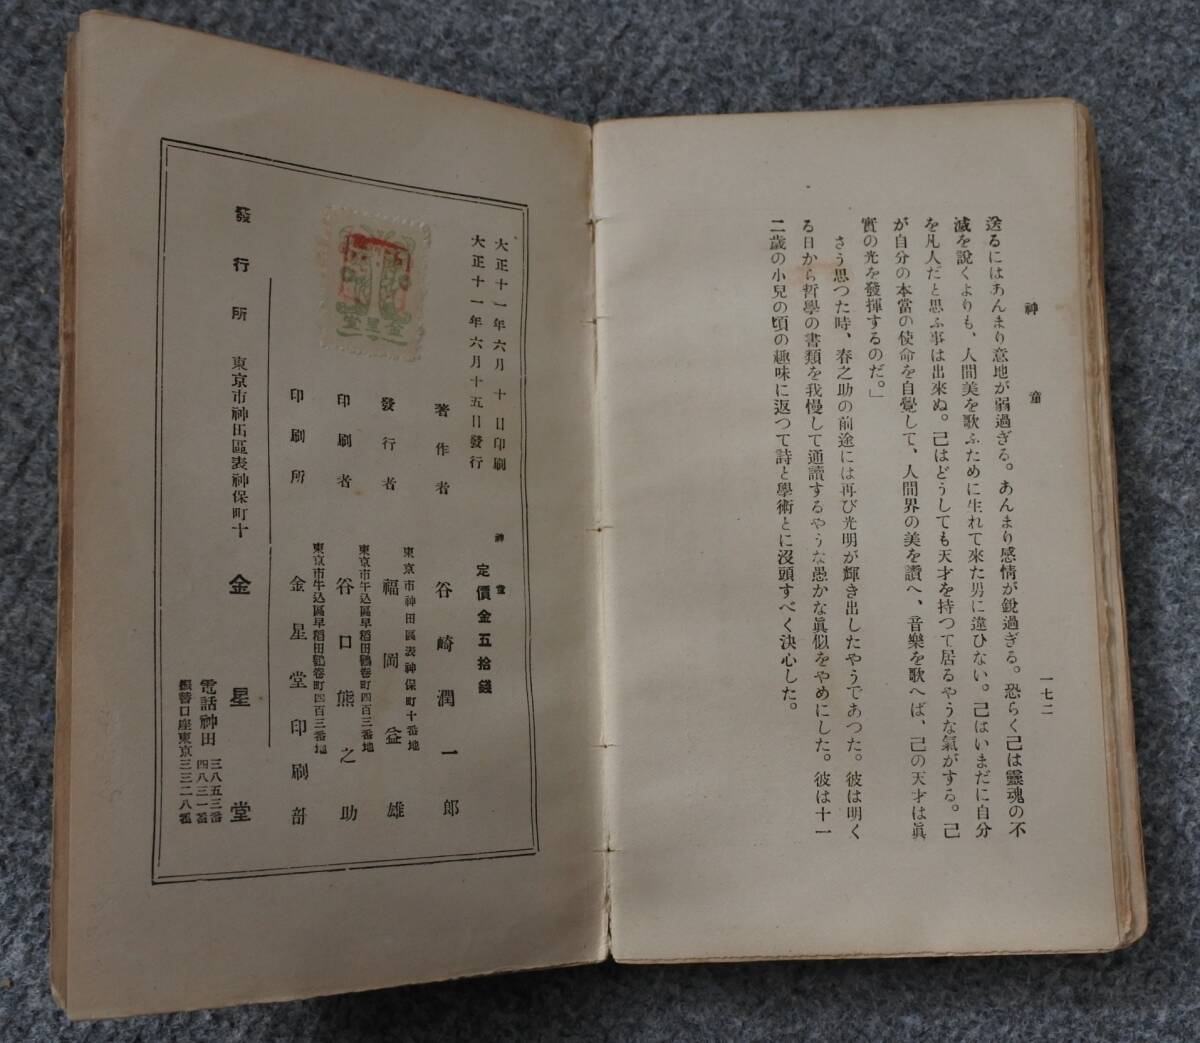 神童
一七二
送るにはあんまり意地が弱過ぎる。あんまり感情が銳過ぎる。恐らく己は靈魂の不
滅を說くよりも、人間美を歌ふために生れて來た男に違ひない。己はいまだに自分
を凡人だと思ふ事は出來ぬ。己はどうしても天才を持つて居るやうな氣がする。己
が自分の本當の使命を自覺して、人間界の美を讚へ、音樂を歌へば、己の天才は眞
實の光を發揮するのだ。」
さう思つた時、春之助の前途には再び光明が輝き出したやうであつた。彼は明く
る日から哲學の書類を我慢して通讀するやうな愚かな眞似をやめにした。彼は十一
二歲の小兒の頃の趣味に返つて詩と學術とに沒頭すべく決心した。
神童
定價金五拾錢
大正十一年六月十日印刷
大正十一年六月十五日發行
著作者 谷崎潤一郎
東京市神田區表神保町十番地
發行者 福岡益雄
東京市牛込區早稻田鶴卷町四百三番地
印刷者 谷口熊之助
東京市牛込區早稻田鶴卷町四百三番地
印刷所 金星堂印刷部
金星堂
發行所 東京市神田區表神保町十 金星堂
電話神田 三八五三番 四八三一番
振替口座東京三三二八番